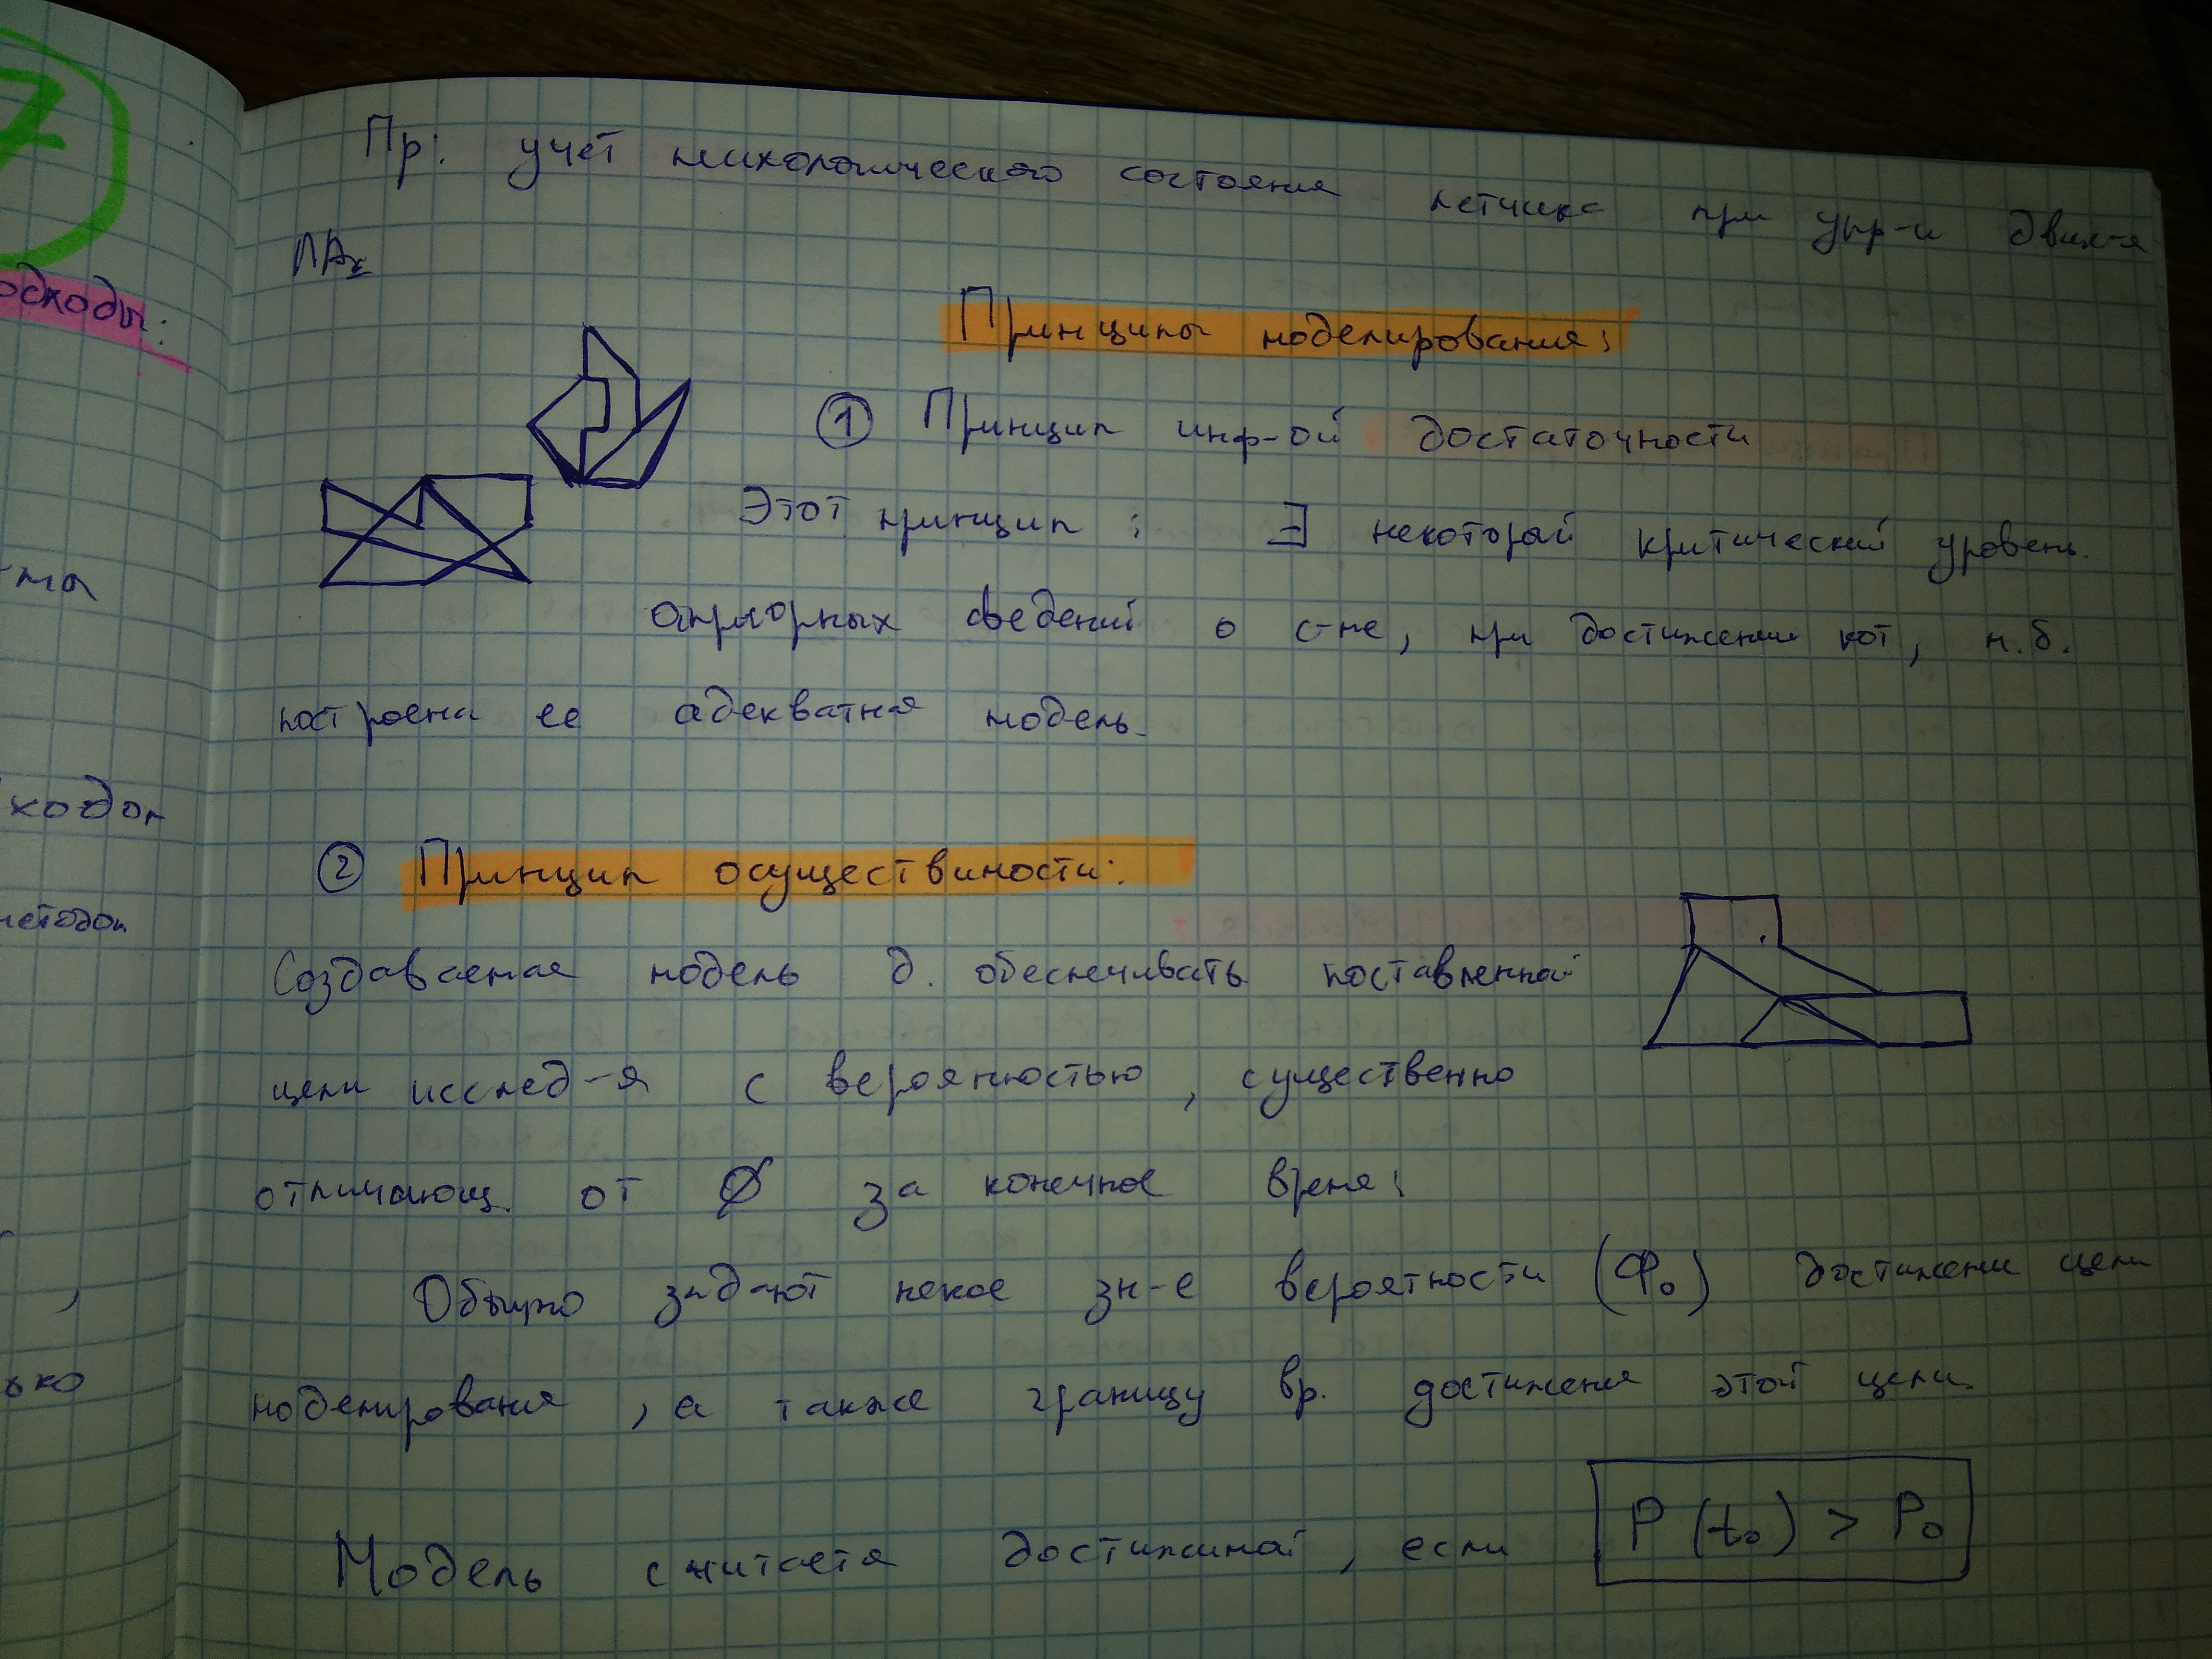 7
одходы:
Пр: учёт психологического состояния летчика при упр-и движ-я
ЛАх
Принципы моделирования:
① Принцип инф-ой достаточности
Этот принцип : ∃ некоторый критический уровень
априорных сведений о с-ме, при достижении кот, м.б.
построена ее адекватная модель.
② Принцип осуществимости:
Создаваемая модель д. обеспечивать поставленной
цели исслед-я с вероятностью, существенно
отличающ. от 0 за конечное время:
Обычно задают некое зн-е вероятности (P₀) достижени цели
моделирования, а также границу вр. достижения этой цели.
Модель считается достижимой, если P (t₀) > P₀
-мы
ходом
методом
ько